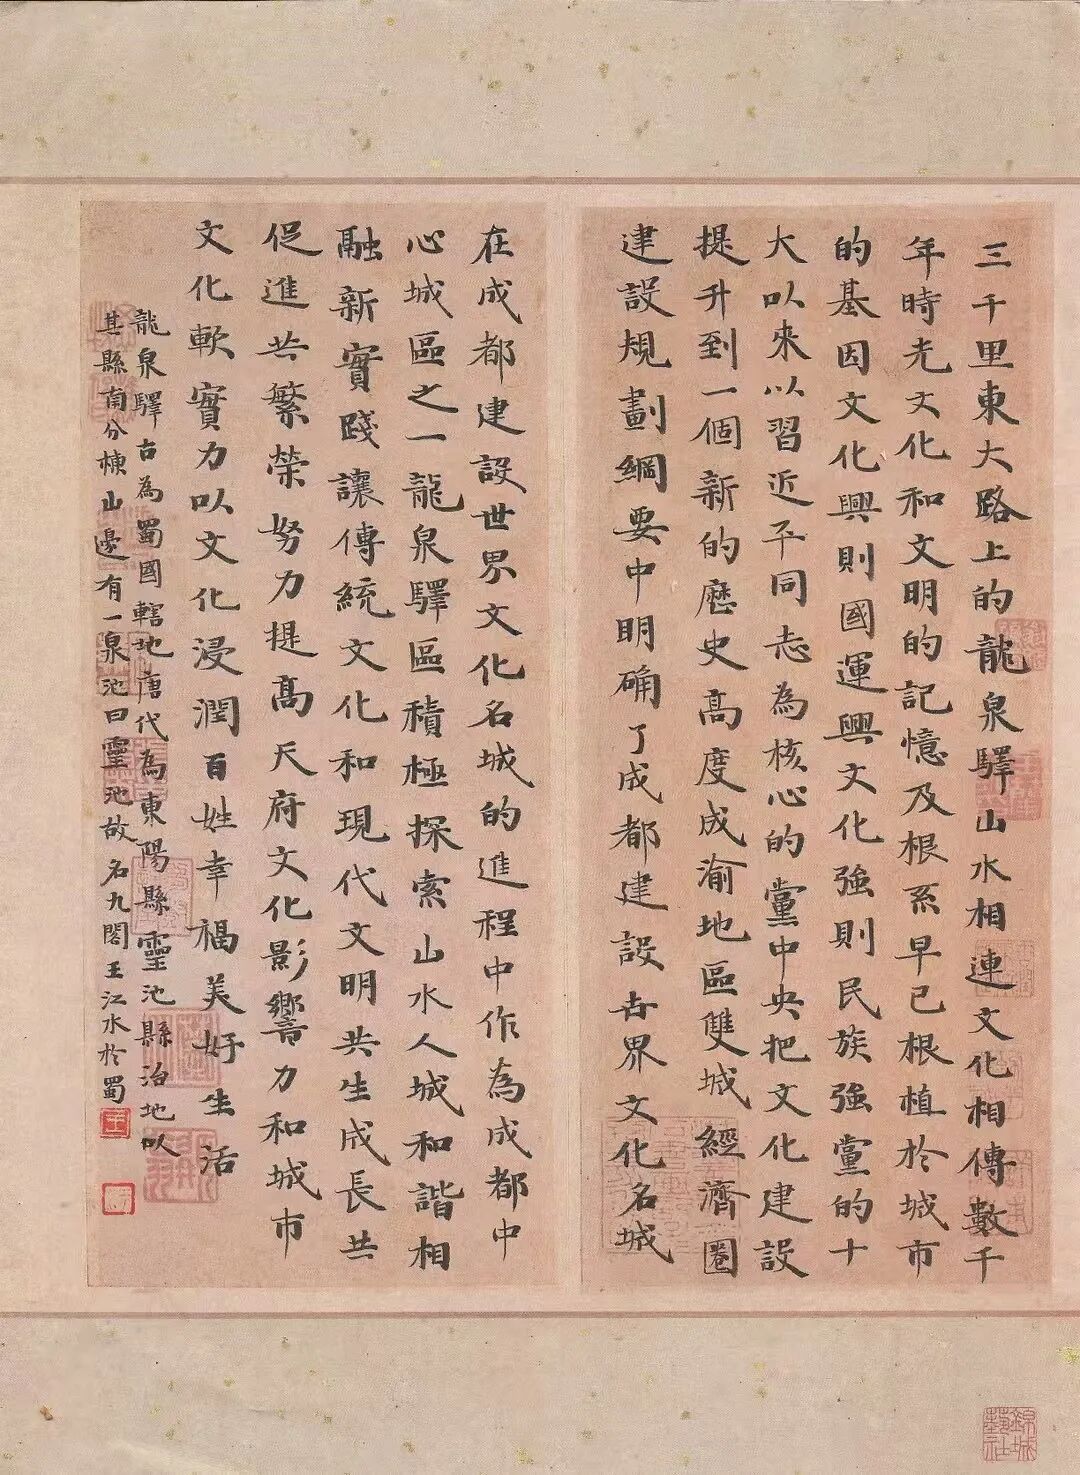 三千里東大路上的龍泉驛山水相連文化相傳數千
年時光文化和文明的記憶及根系早已根植於城市
的基因文化興則國運興文化強則民族強黨的十
大以來以習近平同志為核心的黨中央把文化建設
提升到一個新的歷史高度成渝地區雙城經濟圈
建設規劃綱要中明確了成都建設世界文化名城
在成都建設世界文化名城的進程中作為成都中
心城區之一龍泉驛區積極探索山水人城和諧相
融新實踐讓傳統文化和現代文明共生成長共
促進共繁榮努力提高天府文化影響力和城市
文化軟實力以文化浸潤百姓幸福美好生活
龍泉驛古為蜀國轄地唐代為東陽縣靈池縣治地以
其縣南分棟山邊有一泉池曰靈池故名九閣王江水於蜀
錦城
藝社